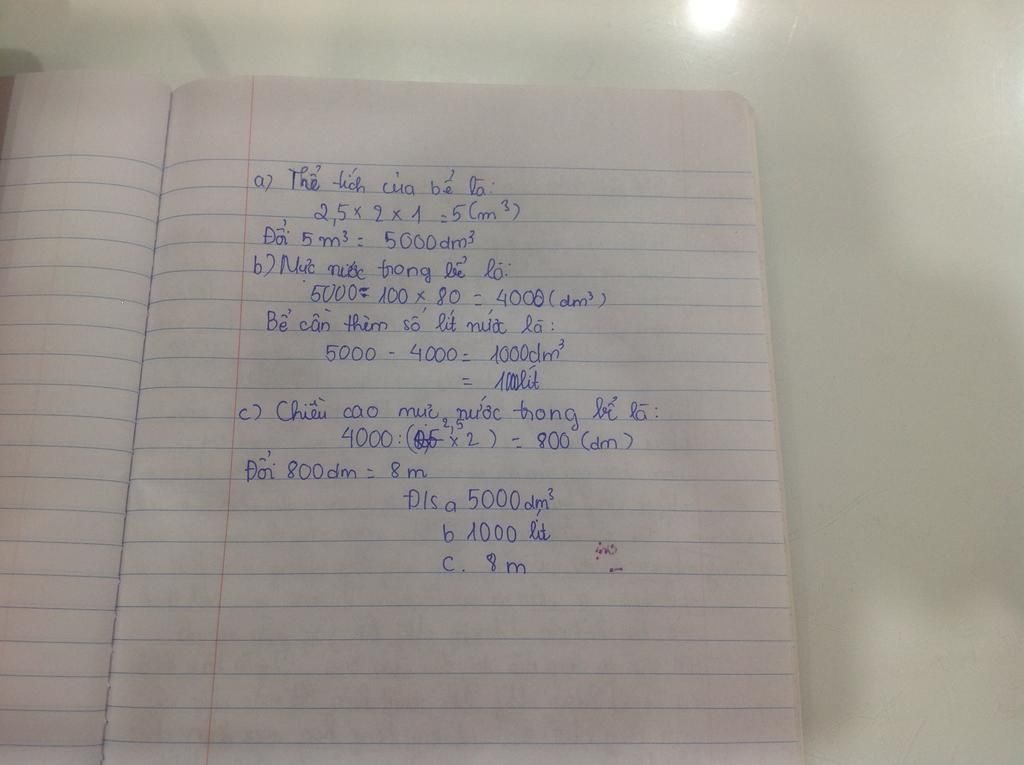 a) Thể tích của bể là:
2,5 × 2 × 1 = 5 (m³)
Đổi 5 m³ = 5000 dm³
b) Mực nước trong bể là:
5000 : 100 × 80 = 4000 (dm³)
Bể cần thêm số lít nước là:
5000 - 4000 = 1000dm³
= 1000lít
c) Chiều cao mực nước trong bể là:
4000 : (2,5 × 2) = 800 (dm)
Đổi 800dm = 8m
Đ/s a 5000dm³
b 1000 lít
c. 8m